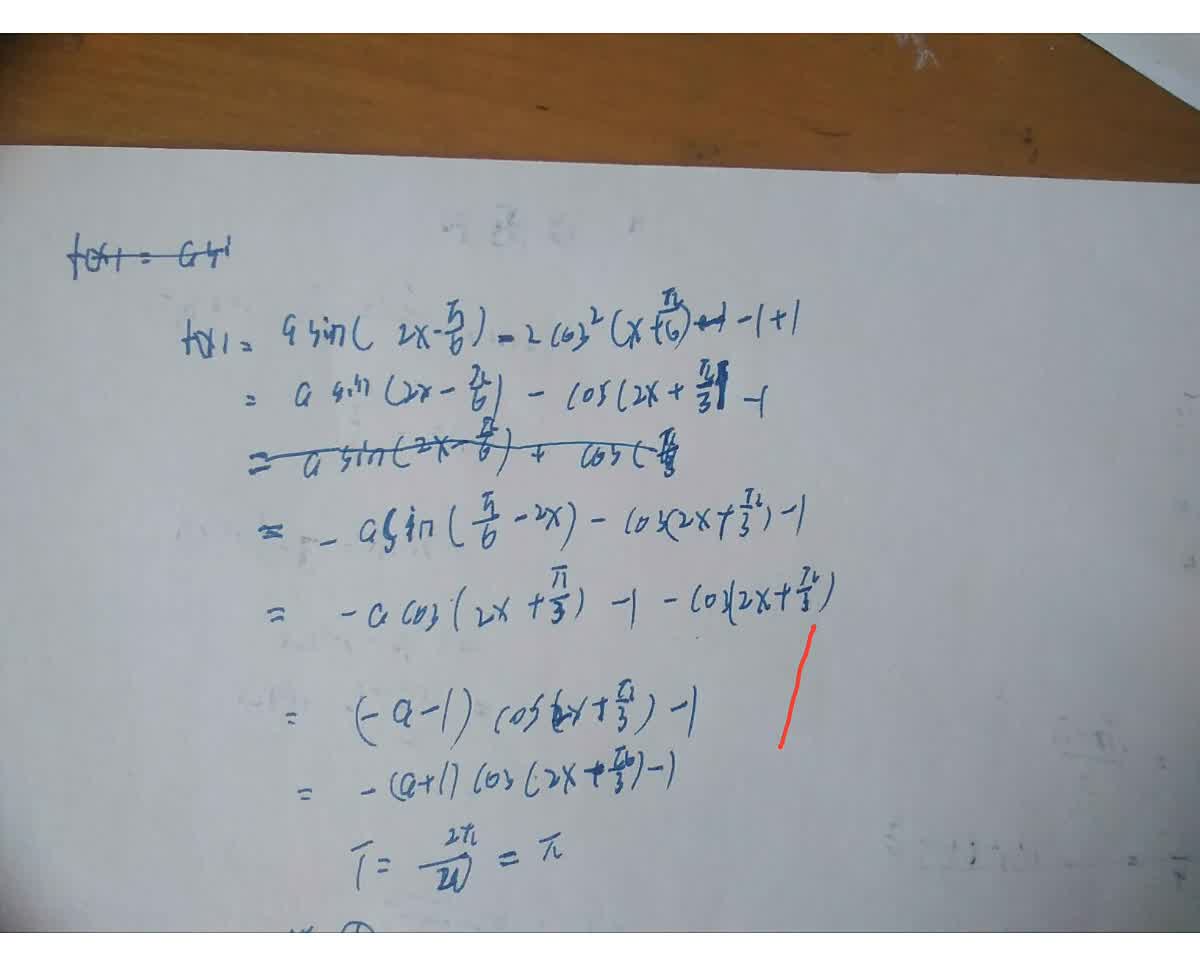 f(x) = a si
f(x) = a sin( 2x - π/6 ) - 2 cos² (x + π/6) - 1 + 1
= a sin (2x - π/6) - cos(2x + π/3) - 1
= a sin(2x - π/6) + cos( π/3
= - a sin ( π/6 - 2x) - cos(2x + π/3) - 1
= - a cos (2x + π/3) - 1 - cos(2x + π/3)
= (-a-1) cos(2x + π/3) - 1
= -(a+1) cos (2x + π/3) - 1
T = 2π/2 = π